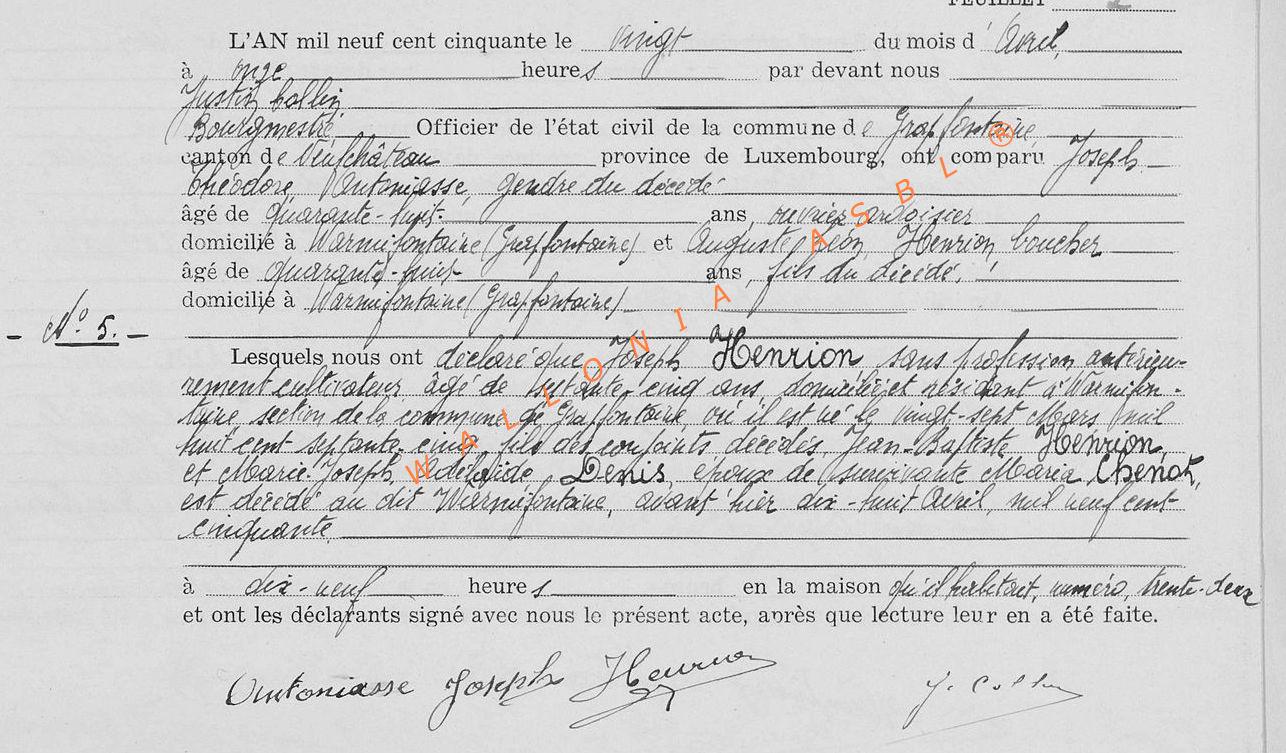 FEUILLET
L'AN mil neuf cent cinquante le vingt du mois d' Avril,
à onze heures par devant nous
Justin Collin
Bourgmestre Officier de l'état civil de la commune de Grapfontaine,
canton de Neufchâteau province de Luxembourg, ont comparu Joseph
Théodore, Antoniasse, gendre du décédé
âgé de quarante-huit ans, ouvrier ardoisier
domicilié à Warmifontaine (Grapfontaine) et Auguste, Léon, Henrion, boucher
âgé de quarante-huit ans, fils du décédé,
domicilié à Warmifontaine (Grapfontaine)
- N° 5. -
Lesquels nous ont déclaré que Joseph Henrion, sans profession antérieu-
rement cultivateur âgé de septante-cinq ans, domicilié et résidant à Warmifon-
taine, section de la commune de Grapfontaine, où il est né le vingt-sept Mars mil
huit cent septante-cinq, fils des conjoints décédés, Jean-Baptiste Henrion,
et Marie-Joseph, Adélaïde, Denis, époux de survivante Maria Chenot,
est décédé au dit Warmifontaine, avant-hier dix-huit Avril, mil neuf cent
cinquante.
à dix-neuf heures en la maison qu'il habitait, numéro, trente-deux
et ont les déclarants signé avec nous le présent acte, après que lecture leur en a été faite.
Antoniasse Joseph Henrion J. Collin
WALLONIA ASBL ®